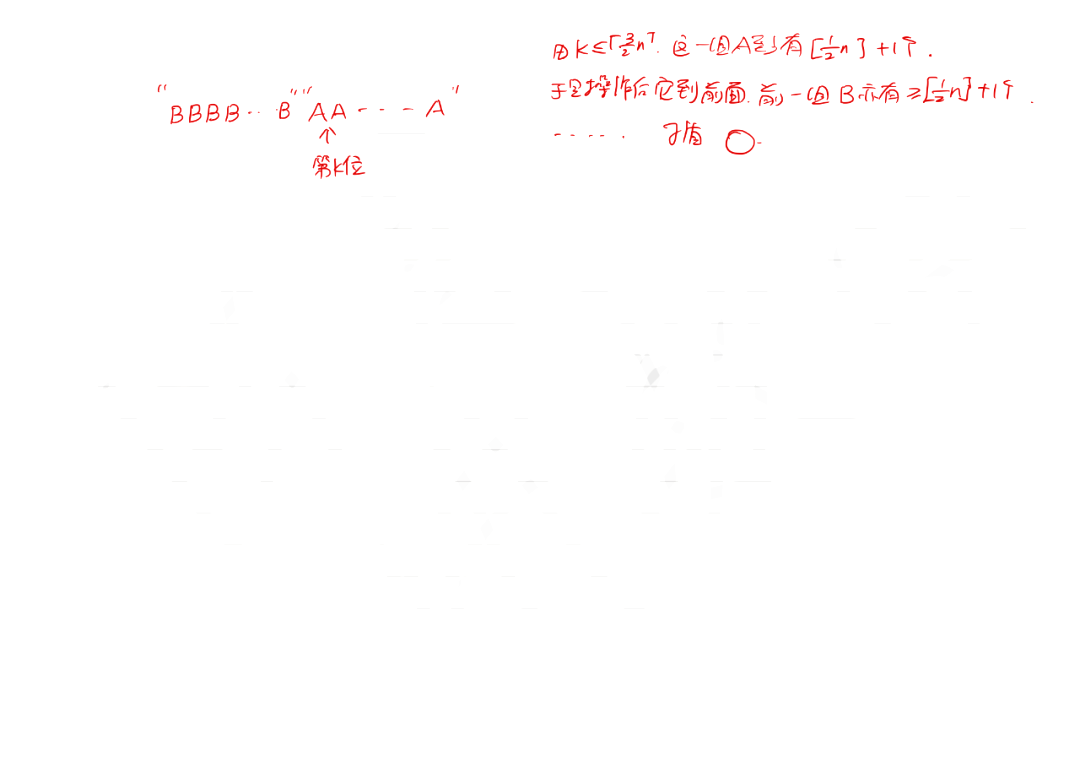 "BBBB…B""AA……A"
↑
第k位
由k≤⌈3/2 n⌉. 这一组A至少有[1/2 n]+1个.
于是操作后它到前面. 前一组B亦有≥[1/2 n]+1个.
……. 矛盾 ○.